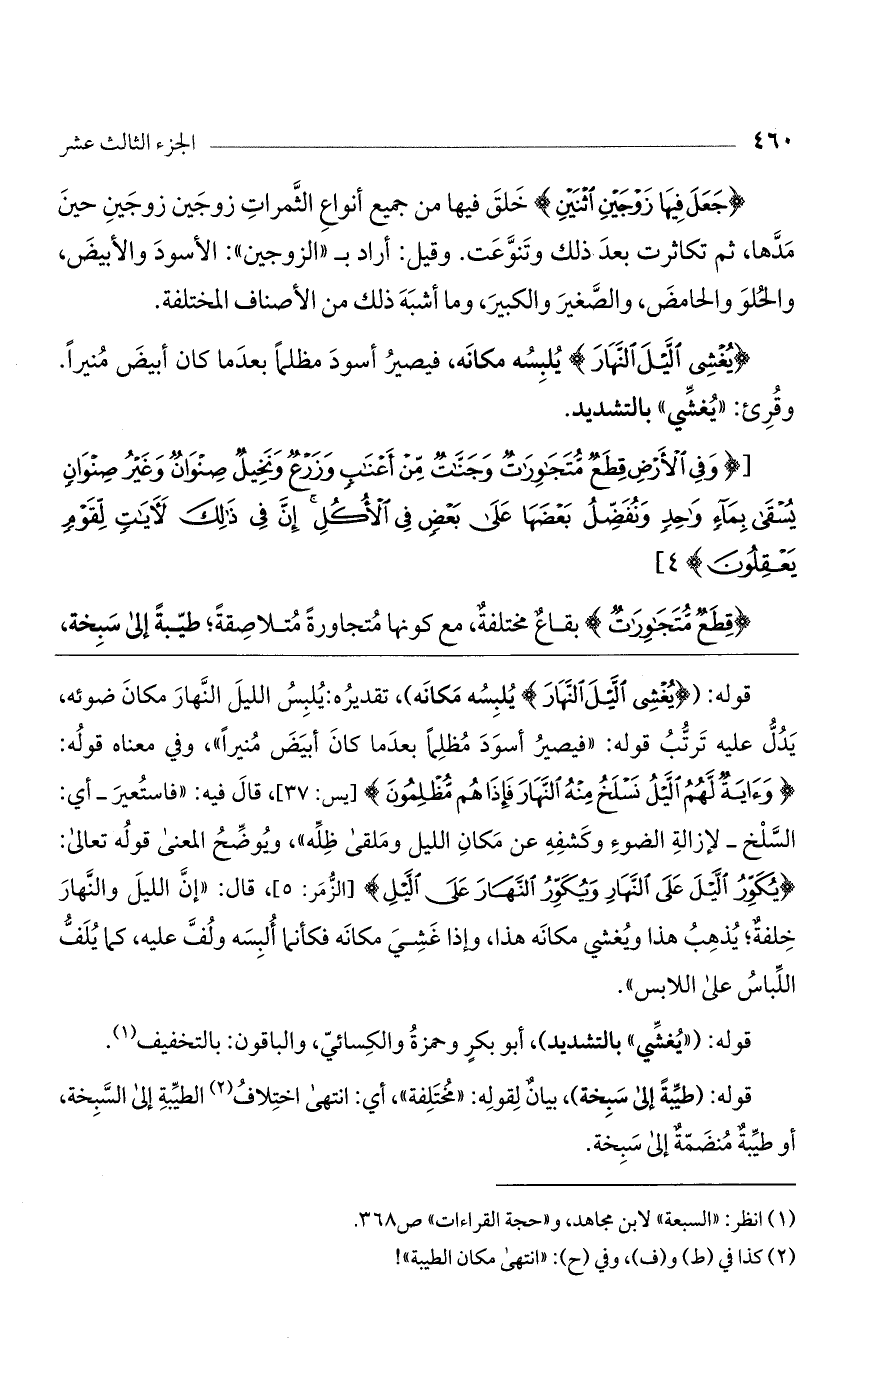 ٤٦٠ الجزء الثالث عشر
﴿جَعَلَ فِيهَا زَوْجَيْنِ ٱثْنَيْنِ﴾ خَلقَ فيها من جميع أنواعِ الثَّمراتِ زوجَين زوجَينِ حينَ
مَدَّها، ثم تكاثرت بعدَ ذلك وتَنوَّعَت. وقيل: أراد بـ «الزوجين»: الأسودَ والأبيضَ،
والحُلوَ والحامضَ، والصَّغيرَ والكبيرَ، وما أشبَهَ ذلك من الأصناف المختلفة.
﴿يُغْشِى ٱلَّيْلَ ٱلنَّهَارَ﴾ يُلبِسُه مكانَه، فيصيرُ أسودَ مظلماً بعدَما كان أبيضَ مُنيراً.
وقُرِئ: «يُغشِّي» بالتشديد.
[﴿وَفِى ٱلْأَرْضِ قِطَعٌ مُّتَجَٰوِرَٰتٌ وَجَنَّٰتٌ مِّنْ أَعْنَٰبٍ وَزَرْعٌ وَنَخِيلٌ صِنْوَانٌ وَغَيْرُ صِنْوَانٍ
يُسْقَىٰ بِمَآءٍ وَٰحِدٍ وَنُفَضِّلُ بَعْضَهَا عَلَىٰ بَعْضٍ فِى ٱلْأُكُلِ ۚ إِنَّ فِى ذَٰلِكَ لَءَايَٰتٍ لِّقَوْمٍ
يَعْقِلُونَ﴾ ٤]
﴿قِطَعٌ مُّتَجَٰوِرَٰتٌ﴾ بقـاعٌ مختلفةٌ، مع كونها مُتجاورةً مُتـلاصِقةً؛ طيّـبةً إلىٰ سَبِخة،
قوله: (﴿يُغْشِى ٱلَّيْلَ ٱلنَّهَارَ﴾ يُلبِسُه مَكانَه)، تقديرُه: يُلبِسُ الليلَ النَّهارَ مكانَ ضوئه،
يَدُلُّ عليه تَرتُّبُ قوله: «فيصيرُ أسوَدَ مُظلِماً بعدَما كانَ أبيَضَ مُنيراً»، وفي معناه قولُه:
﴿وَءَايَةٌ لَّهُمُ ٱلَّيْلُ نَسْلَخُ مِنْهُ ٱلنَّهَارَ فَإِذَا هُم مُّظْلِمُونَ﴾ [يس: ٣٧]، قالَ فيه: «فاستُعيرَ ـ أي:
السَّلْخ ـ لإزالةِ الضوءِ وكَشفِهِ عن مَكانِ الليل ومَلقىٰ ظِلِّه»، ويُوضِّحُ المعنىٰ قولُه تعالىٰ:
﴿يُكَوِّرُ ٱلَّيْلَ عَلَى ٱلنَّهَارِ وَيُكَوِّرُ ٱلنَّهَارَ عَلَى ٱلَّيْلِ﴾ [الزُّمَر: ٥]، قال: «إنَّ الليلَ والنَّهارَ
خِلفةٌ؛ يُذهِبُ هذا ويُغشي مكانَه هذا، وإذا غَشِـيَ مكانَه فكأنما أُلبِسَه ولُفَّ عليه، كما يُلَفُّ
اللِّباسُ علىٰ اللابس».
قوله: («يُغشِّي» بالتشديد)، أبو بكرٍ وحمزةُ والكِسائيّ، والباقون: بالتخفيف(١).
قوله: (طيِّبةً إلىٰ سَبِخة)، بيانٌ لِقولِه: «مُختَلِفة»، أي: انتهىٰ اختِلافُ(٢) الطيِّبةِ إلىٰ السَّبِخة،
أو طيِّبةٌ مُنضَمّةٌ إلىٰ سَبِخة.
(١) انظر: «السبعة» لابن مجاهد، و«حجة القراءات» ص٣٦٨.
(٢) كذا في (ط) و(ف)، وفي (ح): «انتهىٰ مكان الطيبة»!